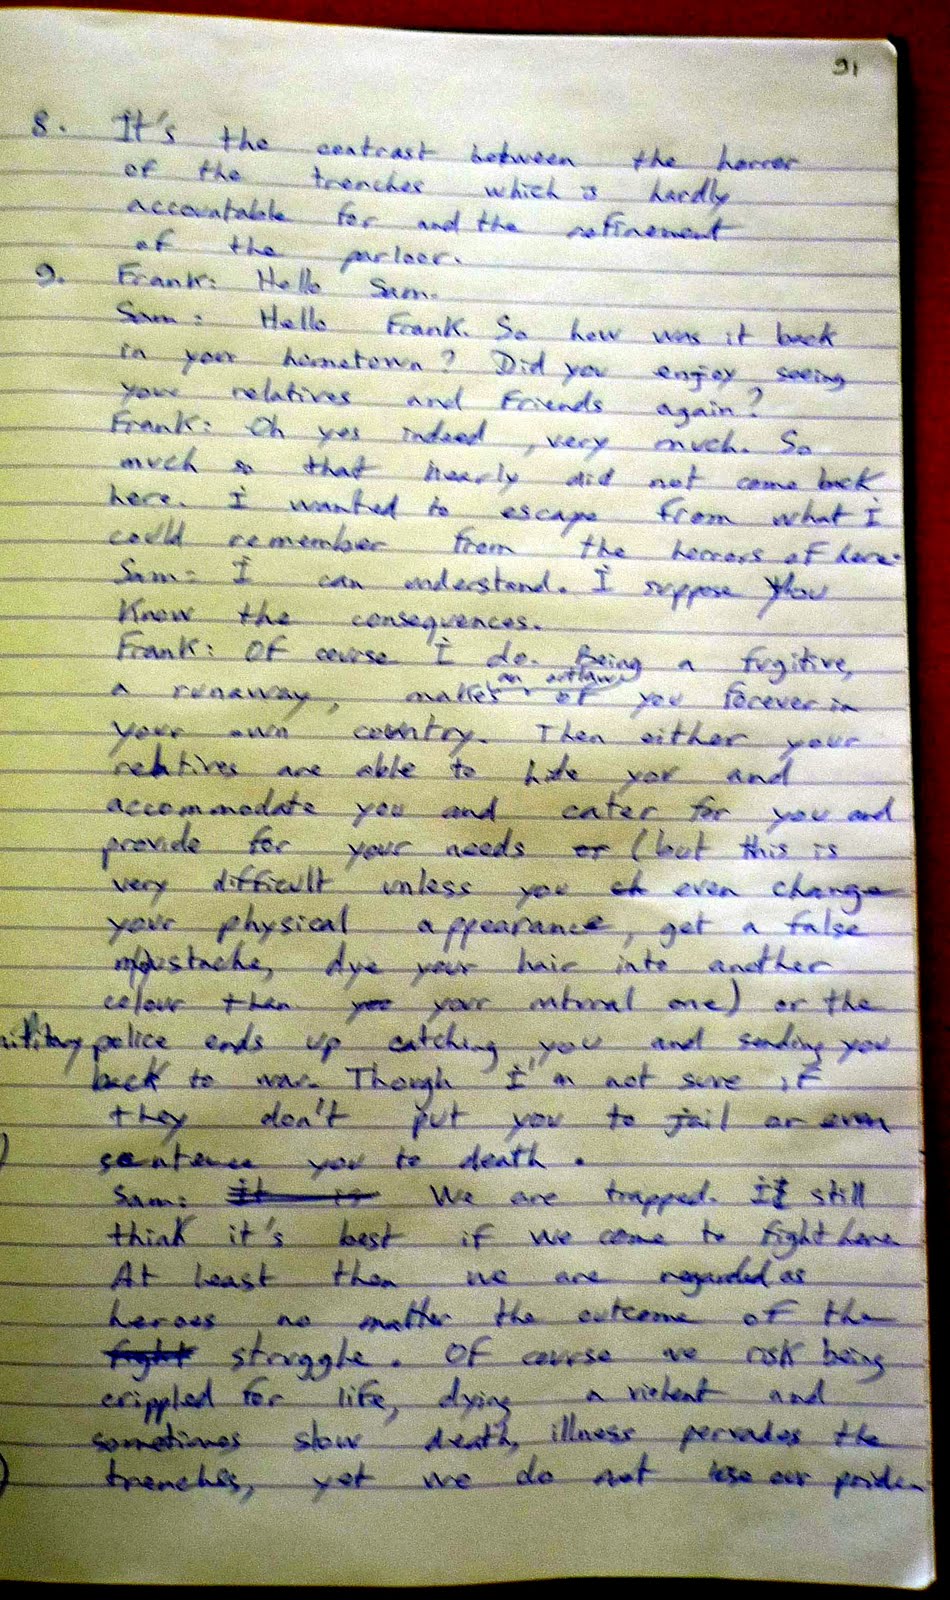 91
8. It's the contrast between the horror
of the trenches which is hardly
accountable for and the refinement
of the parloer.
9. Frank: Hello Sam.
Sam: Hello Frank. So how was it back
in your hometown? Did you enjoy seeing
your relatives and Friends again?
Frank: Oh yes indeed, very much. So
much so that nearly did not come back
here. I wanted to escape from what I
could remember from the horrors of here.
Sam: I can understand. I suppose you
know the consequences.
Frank: Of course I do. Being a fugitive,
an outlaw
a runaway, makes of you forever in
your own country. Then either your
relatives are able to hide you and
accommodate you and cater for you and
provide for your needs or (but this is
very difficult unless you even change
your physical appearance, get a false
moustache, dye your hair into another
colour then your natural one) or the
military police ends up catching you and sending you
back to war. Though I'm not sure if
they don't put you to jail or even
sentence you to death.
Sam: it is We are trapped. I still
think it's best if we come to fight here
At least then we are regarded as
heroes no matter the outcome of the
fight struggle. Of course we risk being
crippled for life, dying a violent and
sometimes slow death, illness pervades the
trenches, yet we do not lose our